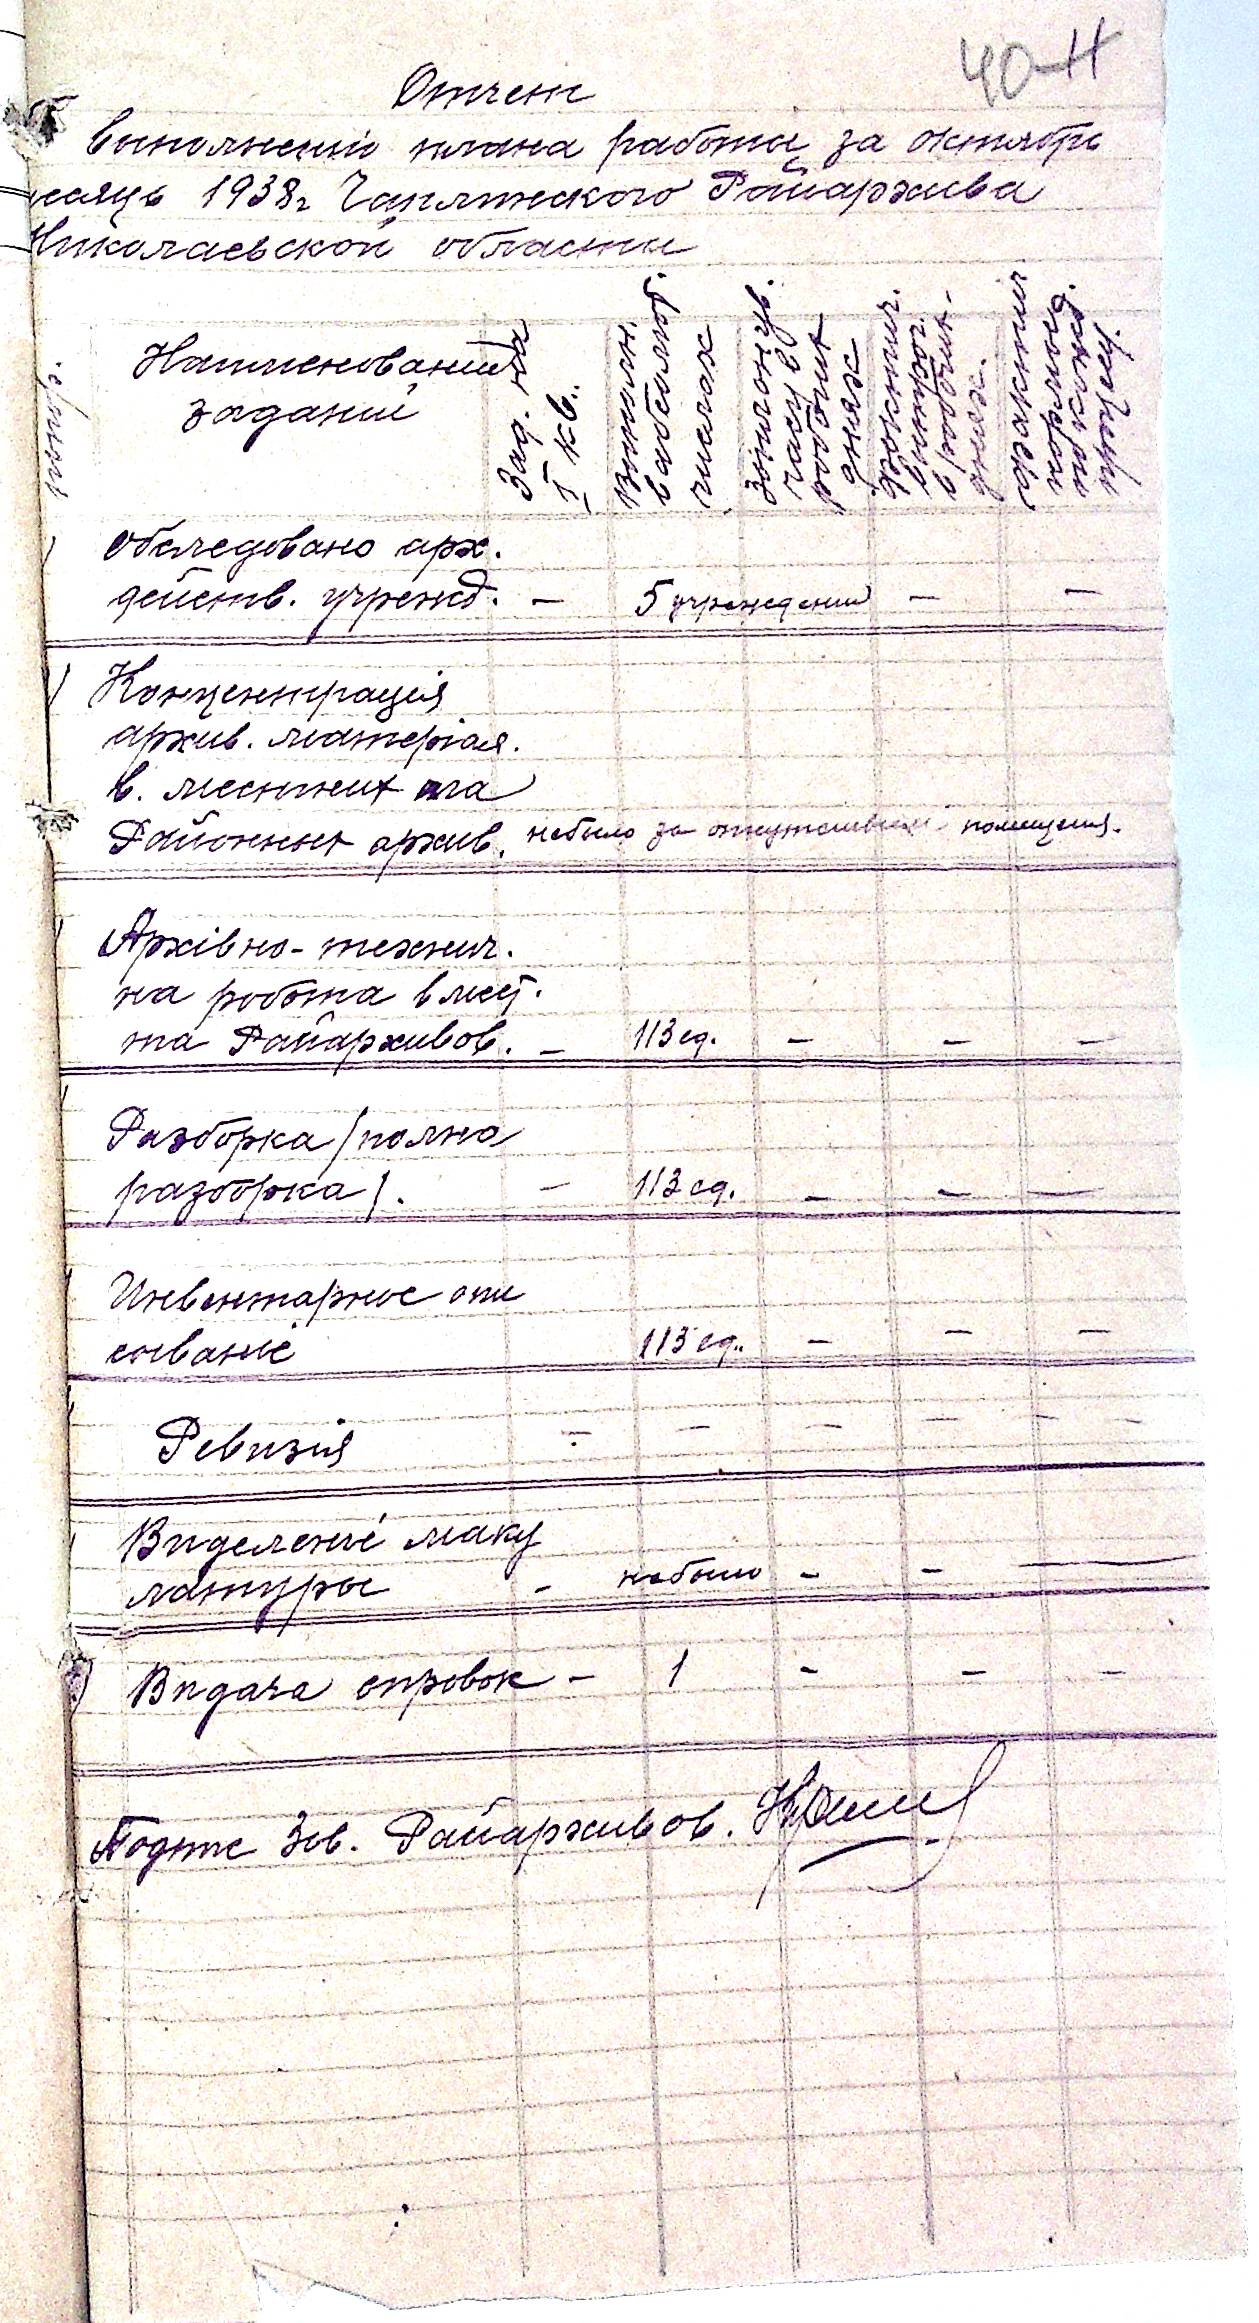 40
Отчет
выполнений плана работы за октябрь
месяць 1938г Чаплинского Райархива
Николаевской области
Наименований
заданий
Зад. на
I кв.
в абсолют.
числах
часу в
робочих
днях
Фактич.
в робочих
днях.
Фактич
норма
по кожн.
процеу.
Обследовано арх.
действ. учрежд. – 5 учреждений – –
Концентрация
архив. матеріал.
в. местних та
Районных архив. небыло за отсутствием помещения.
Архівно-технич.
на робота в мест.
та Райархивов. – 113 ед. – – –
Разборка (полна
разборка). – 113 ед. – – –
Инвентарное опи
сываніе 113 ед. – – –
Ревизия – – – – – –
Виделеніе маку
латуры – небыло – – –
Видача справок – 1 – – –
Зав. Райархивов.